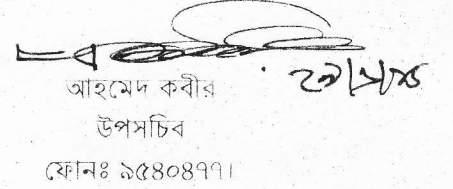 আহমেদ কবীর
উপসচিব
ফোনঃ ৯৫৪০৪৭৭।